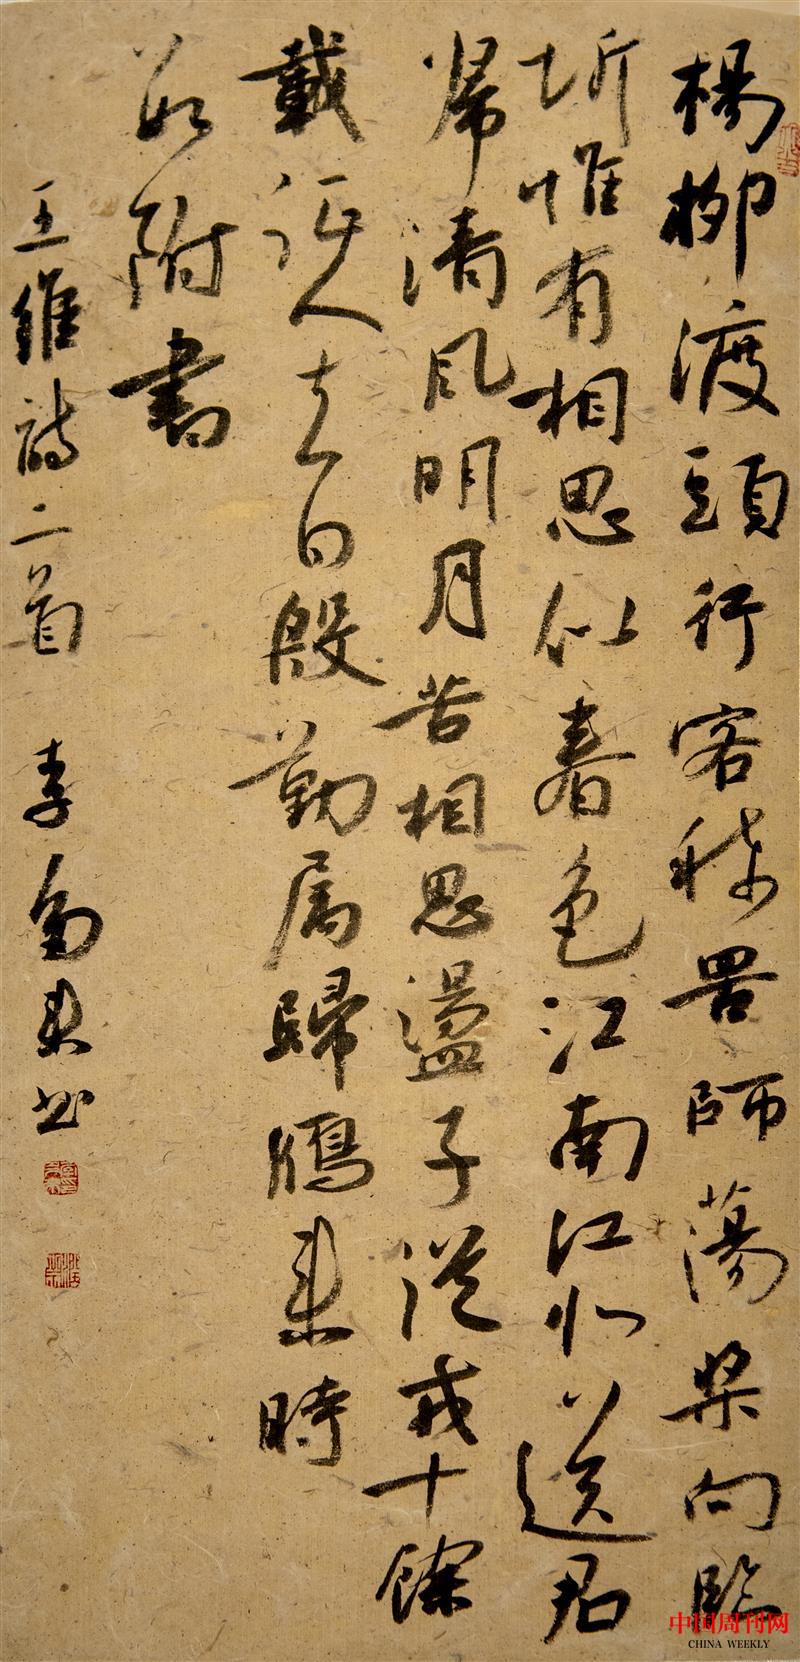 楊柳渡頭行客稀罟師蕩槳向臨
圻惟有相思似春色江南江北送君
帰清風明月苦相思盪子從戎十餘
載征人去日殷勤属歸鴈来時
数附書
王維詩二首 李
中国周刊网
CHINA WEEKLY